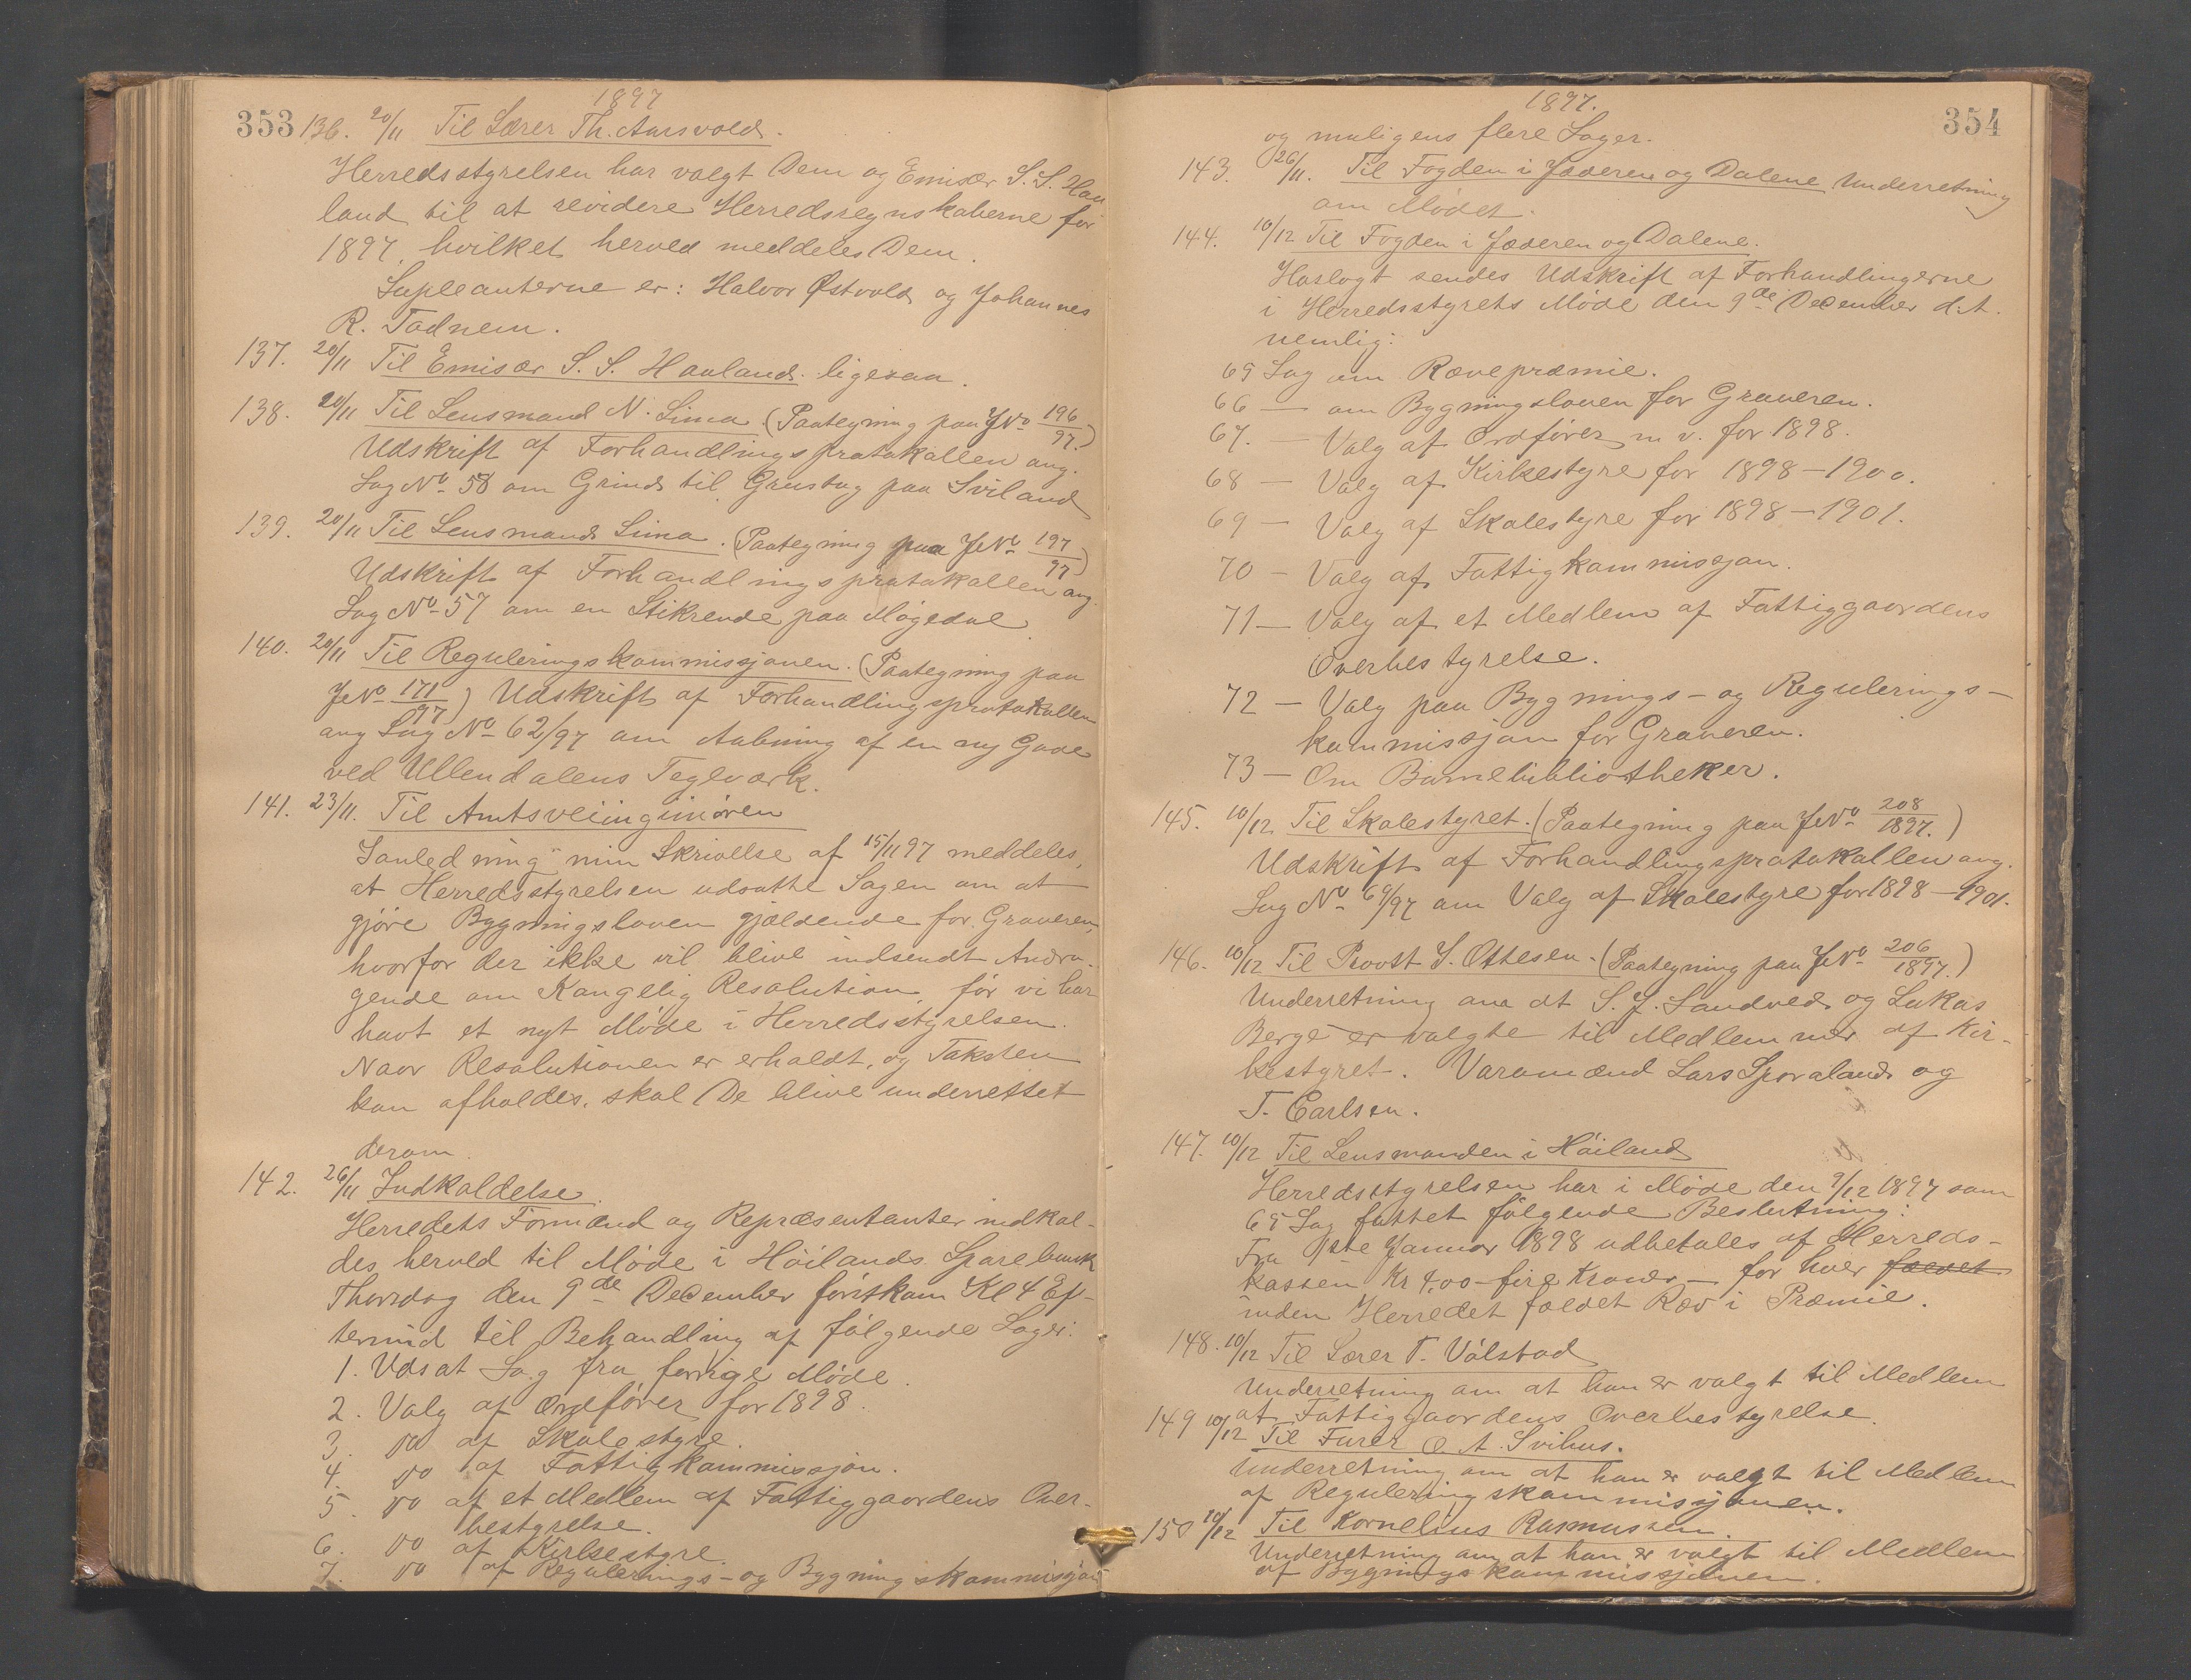 1897
353 136. 20/11 Til Lærer Th. Aarsvold.
Herredsstyrelsen har valgt Dem og Emisær S. S. Hau
land til at revidere Herredsregnskaberne for
1897, hvilket herved meddeles Dem.
Supleanterne er: Halvor Østvold og Johannes
R. Tadnem.
137. 20/11 Til Emisær S. S. Hauland. ligesaa.
138. 20/11 Til Lensmand N. Lima (Paategning paa J№ 196/97.)
Udskrift af Forhandlingsprotokollen ang.
Sag № 58 om Grind til Grustag paa Sviland
139. 20/11 Til Lensmand Lima. (Paategning paa J№ 197/97)
Udskrift af Forhandlingsprotokollen ang.
Sag № 57 om en Stikrende paa Møgedal
140. 20/11 Til Reguleringskommissjonen. (Paategning paa
J№ 171/97) Udskrift af Forhandlingsprotokollen
ang Sag № 62/97 om Aabning af en ny Gade
ved Ullendalens Teglværk.
141. 23/11. Til Amtsveiinginiøren
I anledning min Skrivelse af 15/11 97 meddeles,
at Herredsstyrelsen udsatte Sagen om at
gjøre Bygningsloven gjældende for Graveren,
hvorfor der ikke vil blive indsendt Andra-
gende om Kongelig Resolution, før vi har
havt et nyt Møde i Herredsstyrelsen.
Naar Resolutionen er erholdt, og Taksten
kan afholdes, skal De blive underrettet
derom.
142. 26/11 Indkaldelse.
Herredets Formænd og Repræsentanter indkal-
des herved til Møde i Höilands Sparebank
Thorsdag den 9de December førstkom Kl 4 Ef-
termid til Behandling af følgende Sager:
1. Udsat Sag fra forrige Møde.
2. Valg af Ordfører for 1898.
3. do af Skolestyre.
4. do af Fattigkommissjon.
5. do af et Medlem af Fattiggaardens Over-
bestyrelse.
6. do af Kirkestyre.
7. do af Regulerings- og Bygningskommissjon
1897.
354
og muligens flere Sager.
143. 26/11. Til Fogden i Jæderen og Dalene Underretning
om Mødet.
144. 10/12 Til Fogden i Jæderen og Dalene.
Hoslagt sendes Udskrift af Forhandlingerne
i Herredsstyrets Møde den 9de December d.A.
nemlig:
65 Sag om Rævepræmie.
66 — om Bygningsloven for Graveren.
67. — Valg af Ordfører m v. for 1898.
68 — Valg af Kirkestyre for 1898–1900.
69 — Valg af Skolestyre for 1898–1901.
70 — Valg af Fattigkommissjon.
71 — Valg af et Medlem af Fattiggaardens
Overbestyrelse.
72 — Valg paa Bygnings- og Regulerings-
kommissjon for Graveren.
73 — Om Barnebibliotheker.
145. 10/12 Til Skolestyret. (Paategning paa J№ 208/1897.)
Udskrift af Forhandlingsprotokollen ang.
Sag № 69/97 om Valg af Skolestyre for 1898–1901.
146. 10/12 Til Provst S. Ottesen. (Paategning paa J№ 206/1897.)
Underretning om at S. J. Sandved og Lukas
Berge er valgte til Medlemmer af Kir-
kestyret. Varamænd Lars Sporaland og
T. Carlsen.
147. 10/12 Til Lensmanden i Höiland
Herredsstyrelsen har i Møde den 9/12 1897 som
65 Sag fattet følgende Beslutning:
Fra 1ste Januar 1898 udbetales af Herreds-
kassen Kr 4,00 – fire Kroner – for hver fældet
inden Herredet fældet Ræv i Præmie.
148. 10/12 Til Lærer T. Vålstad
Underretning om at han er valgt til Medlem
af Fattiggaardens Overbestyrelse.
149 10/12 Til Furer O. A. Svihus.
Underretning om at han er valgt til Medlem
af Reguleringskommissjonen.
150 10/12 Til Kornelius Rasmussen.
Underretning om at han er valgt til Medlem
af Bygningskommissjonen.